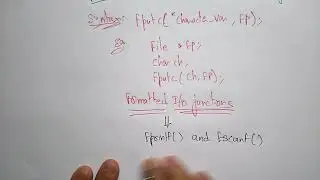 Syntax: fputc("characte_var, fp);
Ex
File *fp;
char ch;
fputc(ch, fp);
Formatted I/o functions
⇓
fprintf() and fscanf()